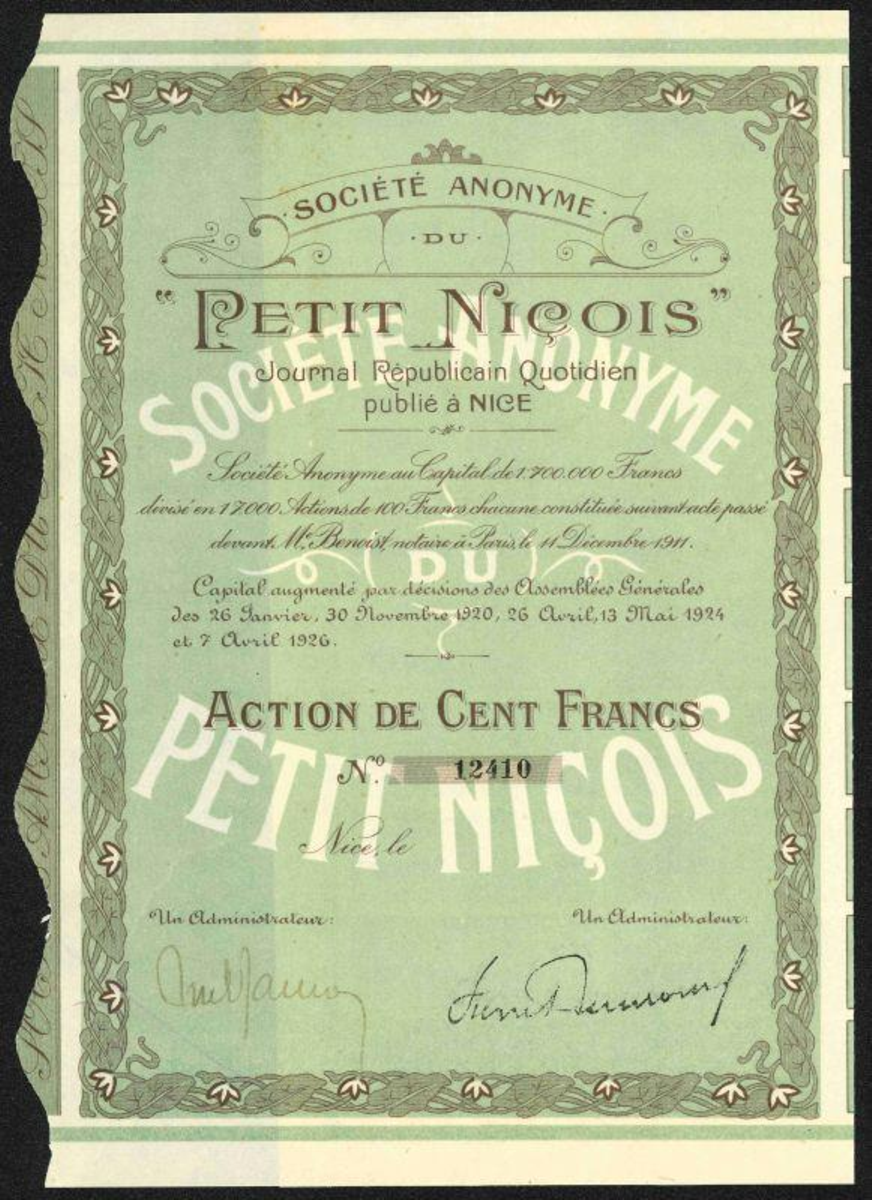 SOCIÉTÉ ANONYME
· DU ·
“PETIT NIÇOIS”
Journal Républicain Quotidien
publié à NICE
Société Anonyme au Capital de 1.700.000 Francs
divisé en 17000 Actions de 100 Francs chacune constituée suivant acte passé
devant Mᵉ Benoist, notaire à Paris, le 11 Décembre 1911.
Capital augmenté par décisions des Assemblées Générales
des 26 Janvier, 30 Novembre 1920, 26 Avril, 13 Mai 1924
et 7 Avril 1926.
ACTION DE CENT FRANCS
Nº 12410
Nice, le
Un Administrateur:
Un Administrateur:
SOCIÉTÉ ANONYME
DU
PETIT NIÇOIS